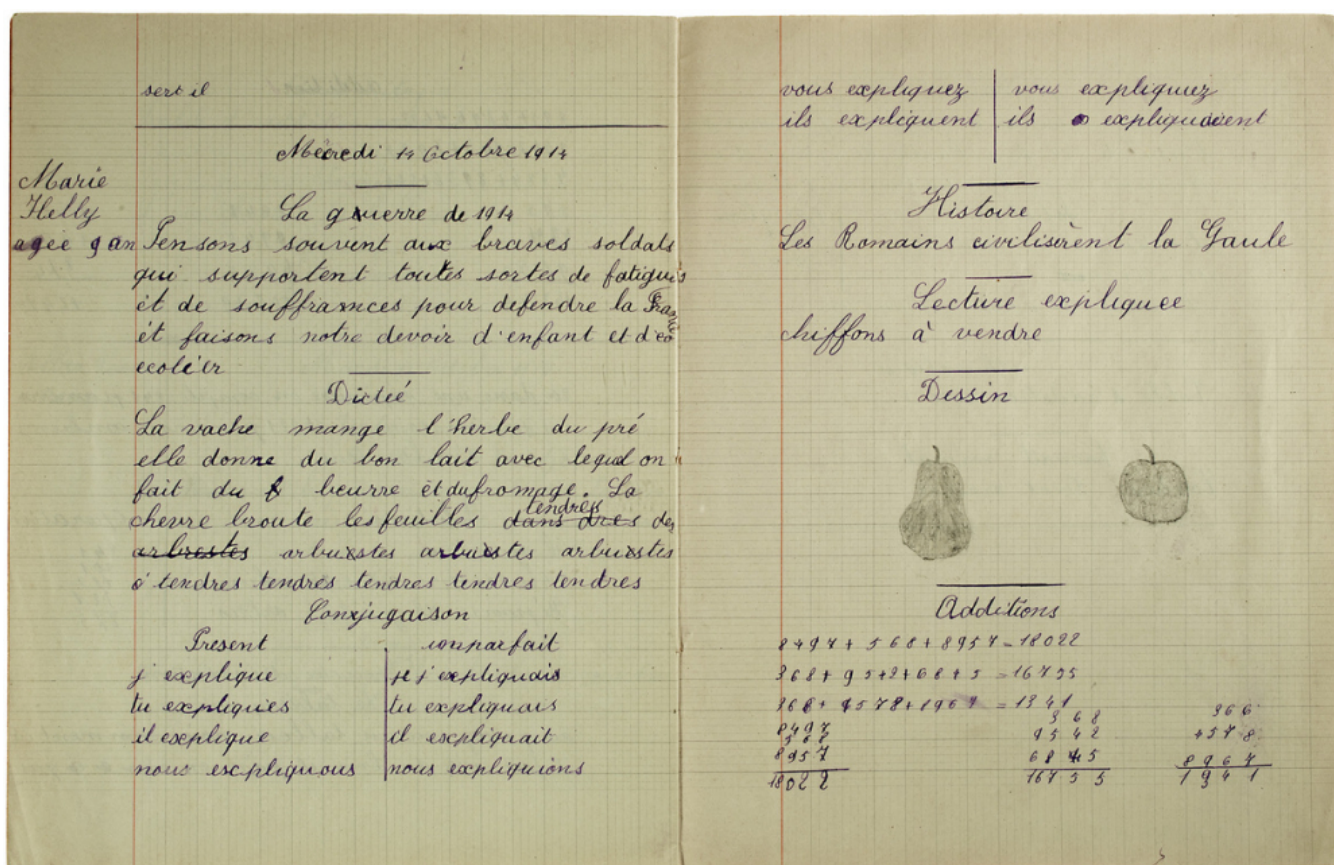 sert il
Mécredi 14 Octobre 1914
Marie
Helly
agée 9 an
La guerre de 1914
Pensons souvent aux braves soldats
qui supportent toutes sortes de fatigues
et de souffrances pour defendre la France
ét faisons notre devoir d'enfant et d'éo
ecolier
Dicteé
La vache mange l'herbe du pré
elle donne du bon lait avec lequel on
fait du beurre et du fromage. La
chevre broute les feuilles tendres des
arbrestes arbustes arbustes arbustes
tendres tendres tendres tendres tendres
Conjugaison
Present imparfait
j explique je j expliquais
tu expliques tu expliquais
il explique il expliquait
nous expliquons nous expliquions
vous expliquez vous expliquiez
ils expliquent ils expliquaient
Histoire
Les Romains civilisèrent la Gaule
Lecture expliquee
chiffons à vendre
Dessin
Additions
8497 + 568 + 8957 = 18022
368 + 95+2+68+5 = 16755
368 + 4578 + 1967 = 1341
8497 368 366
568 9542 4578
8957 6845 8967
18022 16755 1341